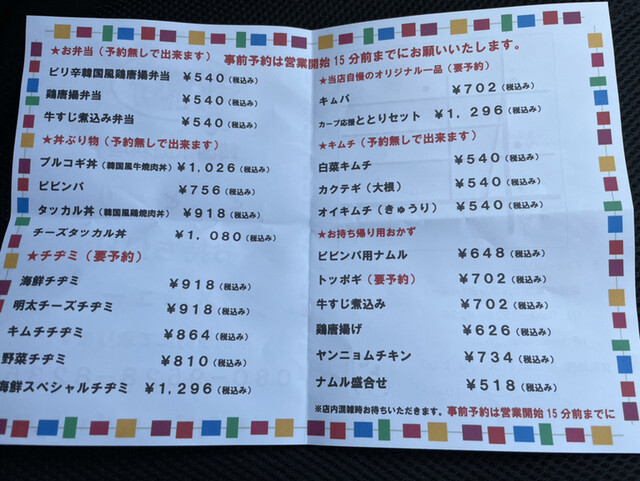 事前予約は営業開始15分前までにお願いいたします。
★お弁当（予約無しで出来ます）
ピリ辛韓国風鶏唐揚弁当 ￥540（税込み）
鶏唐揚弁当 ￥540（税込み）
牛すじ煮込み弁当 ￥540（税込み）
★丼ぶり物（予約無しで出来ます）
プルコギ丼（韓国風牛焼肉丼）￥1,026（税込み）
ビビンバ ￥756（税込み）
タッカル丼（韓国風鶏焼肉丼）￥918（税込み）
チーズタッカル丼 ￥1,080（税込み）
★チヂミ（要予約）
海鮮チヂミ ￥918（税込み）
明太チーズチヂミ ￥918（税込み）
キムチチヂミ ￥864（税込み）
野菜チヂミ ￥810（税込み）
海鮮スペシャルチヂミ ￥1,296（税込み）
★当店自慢のオリジナル一品（要予約）
キムパ ￥702（税込み）
カープ応援ととりセット ￥1,296（税込み）
★キムチ（予約無しで出来ます）
白菜キムチ ￥540（税込み）
カクテギ（大根） ￥540（税込み）
オイキムチ（きゅうり）￥540（税込み）
★お持ち帰り用おかず
ビビンバ用ナムル ￥648（税込み）
トッポギ（要予約） ￥702（税込み）
牛すじ煮込み ￥702（税込み）
鶏唐揚げ ￥626（税込み）
ヤンニョムチキン ￥734（税込み）
ナムル盛合せ ￥518（税込み）
※店内混雑時お待ちいただきます。事前予約は営業開始15分前までに